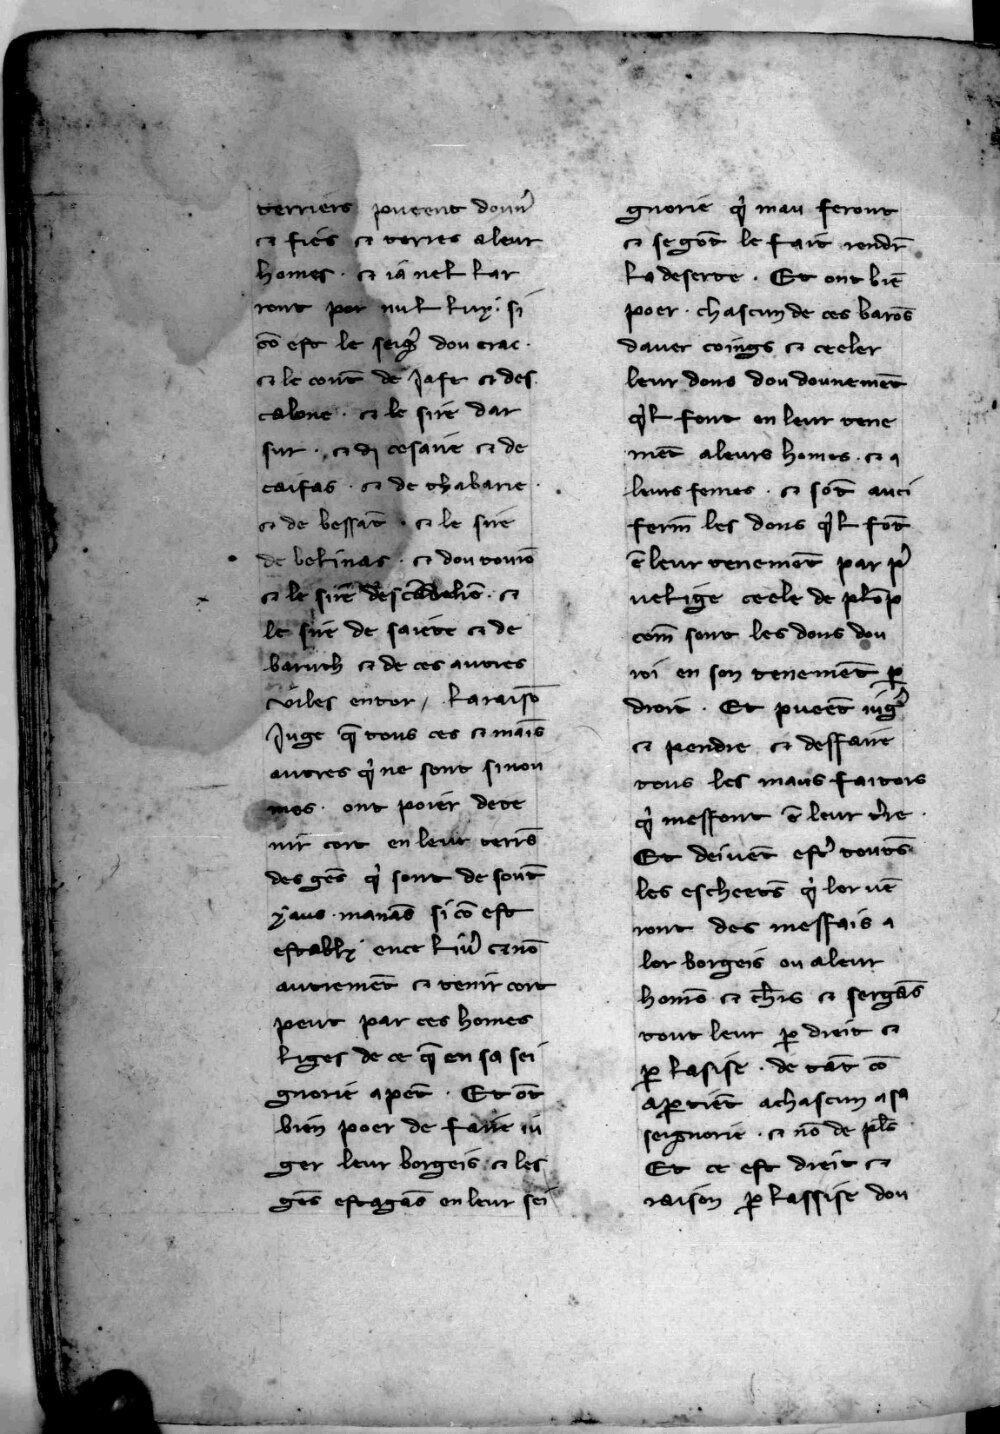 terriers pueent donn̾
⁊ fiés ⁊ terres aleur
homes · ⁊ ia nel lar
ront por nul luy · si
cō est le seig̾ dou crac ·
⁊ le cont̄ de Jafe ⁊ des
calone · ⁊ le sire dar
sur · ⁊ di cesaire ⁊ de
caifas · ⁊ de thabarie ·
⁊ de bessāt · ⁊ le sire
de belinas · ⁊ dou toron̄
⁊ le sire ⁊
le sire de saiete ⁊ de
baruth ⁊ de ces autres
viles entor / la raisō
Juge q̄ tous ces ⁊ mais
autres q̾ ne sont si nou
mes · ont poier dete
nir cort en leur terrēs
des gēs q̾ sont de sout̄
yaus manās si cō est
estably ence liu̾ ⁊ nō
autrement̄ ⁊ tenir cort
peut par ces homes
liges de ce q̄ en sa sei
gnorie apēt · Et ōt
bien poer de faire iu
ger leur borgeis ⁊ les
gēs estāgās en leur sei
gnorie q̾ mau feront
⁊ segōt le fait rendr̄
la deserte · Et ont biē
poer · chascun de ces barōs
daver coings ⁊ ceeler
leur dons dou dounemēt
q̾l font en leur tene
mēt aleurs homes · ⁊ a
leurs femes · ⁊ sōt auci
ferm̄ les dons q̾l fōt
ē leur tenemēt par p̾
uelige ceele de plōp
com̄ sont les dons dou
roi en son tenemēt ꝑ
droit · Et pueēt iug̾
⁊ pendre ⁊ deffaire
tous les maus faitors
q̾ meffont ē leur t̾re ·
Et deivēt est̾ toutēs
les escheetēs q̾ lor uē
ront des meffais a
lor borgeis ou aleur
homēs ⁊ ch̄rs ⁊ sergās
tout leur ꝑ dreit ⁊
ꝑ lasise · de tāt cō
aꝑtiēt achascun asa
seignorie · ⁊ nō de pl̄s
Et ce est dreit ⁊
raison ꝑ lassise dou